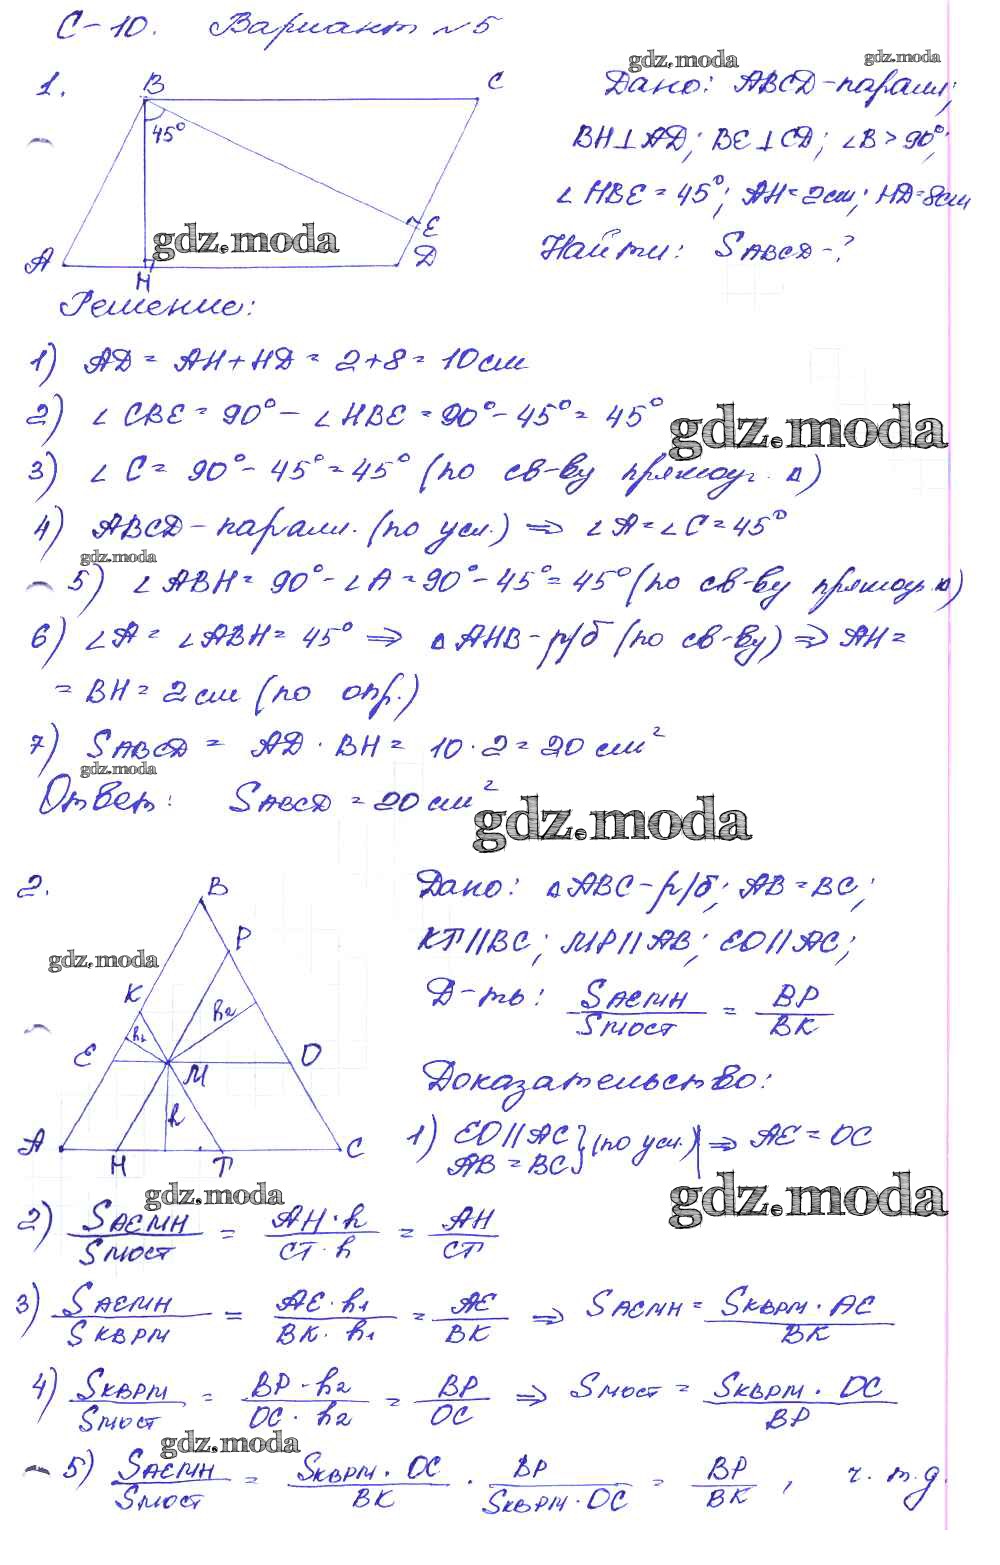 С-10. Вариант №5
gdz.moda gdz.moda
1. B C 45° E A H D
gdz.moda
Дано: ABCD-парал.;
BH⊥AD; BE⊥CD; ∠B>90°;
∠HBE=45°; AH=2см; HD=8см
Найти: SABCD-?
Решение:
1) AD = AH+HD = 2+8 = 10см
2) ∠CBE = 90° - ∠HBE = 90° - 45° = 45°
gdz.moda
3) ∠C = 90° - 45° = 45° (по св-ву прямоуг. Δ)
4) ABCD-парал. (по усл.) ⇒ ∠A = ∠C = 45°
gdz.moda
5) ∠ABH = 90° - ∠A = 90° - 45° = 45° (по св-ву прямоуг. Δ)
6) ∠A = ∠ABH = 45° ⇒ ΔAHB-р/б (по св-ву) ⇒ AH =
= BH = 2см (по опр.)
7) SABCD = AD · BH = 10 · 2 = 20 см²
gdz.moda
Ответ: SABCD = 20 см²
gdz.moda
2. B P K h₂ h₁ E O M h A H T C
gdz.moda
Дано: ΔABC-р/б; AB = BC;
KT||BC; MP||AB; EO||AC;
Д-ть: SAEMH/SMOCT = BP/BK
Доказательство:
1) EO||AC
AB = BC } (по усл.) | ⇒ AE = OC
gdz.moda
gdz.moda
2) SAEMH/SMOCT = AH·h/CT·h = AH/CT
3) SAEMH/SKBPM = AE·h₁/BK·h₁ = AE/BK ⇒ SAEMH = SKBPM·AE/BK
4) SKBPM/SMOCT = BP·h₂/OC·h₂ = BP/OC ⇒ SMOCT = SKBPM·OC/BP
gdz.moda
5) SAEMH/SMOCT = SKBPM·OC/BK · BP/SKBPM·OC = BP/BK, ч.т.д.